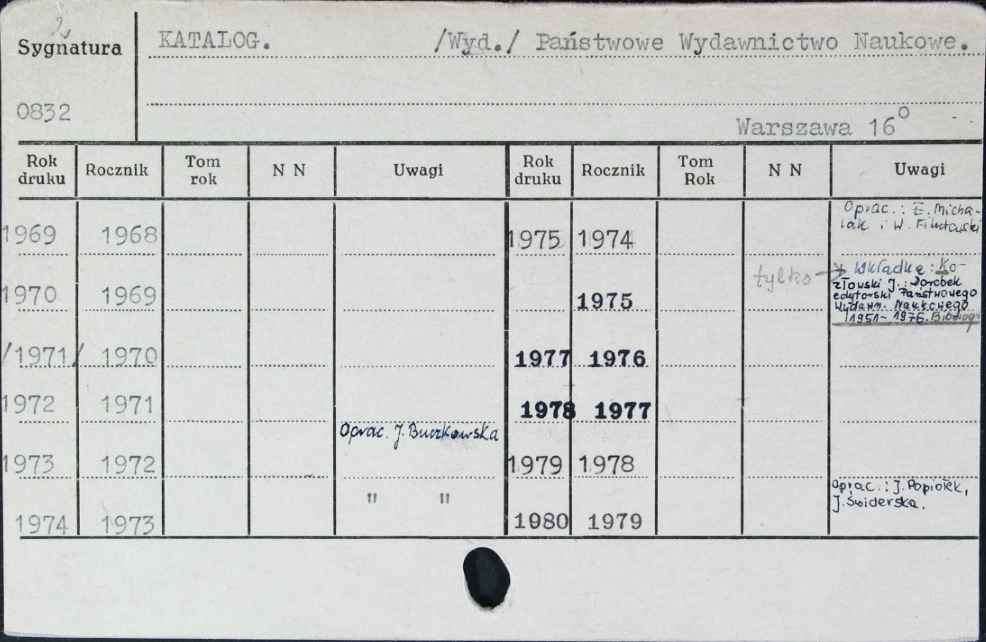 Sygnatura KATALOG. /Wyd./ Państwowe Wydawnictwo Naukowe.
0832
Warszawa 16°
Rok druku Rocznik Tom rok N N Uwagi Rok druku Rocznik Tom Rok N N Uwagi
1969 1968 1975 1974 Oprac.: E. Micha-
lak i W. Filutowski
1970 1969 1975 tylko → Wkładkę: Ko-
złowski J.: Dorobek
edytorski Państwowego
Wydawn. Naukowego
1951-1976. Bibliogr
/1971/ 1970 1977 1976
1972 1971 1978 1977
Oprac. J. Buczkowska
1973 1972 1979 1978
" "
Oprac.: J. Popiołek,
J. Świderska.
1974 1973 1980 1979